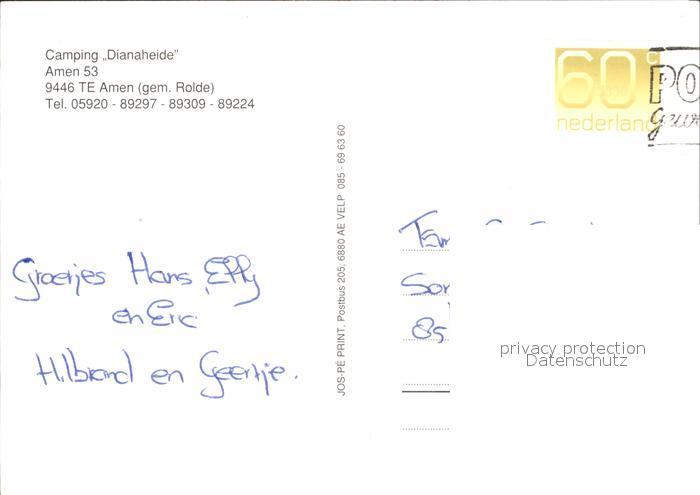 Camping „Dianaheide"
Amen 53
9446 TE Amen (gem. Rolde)
Tel. 05920 - 89297 - 89309 - 89224
60 c
nederland
PO
JOS-PÉ PRINT, Postbus 205, 6880 AE VELP 085 - 69 63 60
Groetjes Hans, Elly
en Eric
Hilbrand en Geertje.
85
privacy protection
Datenschutz